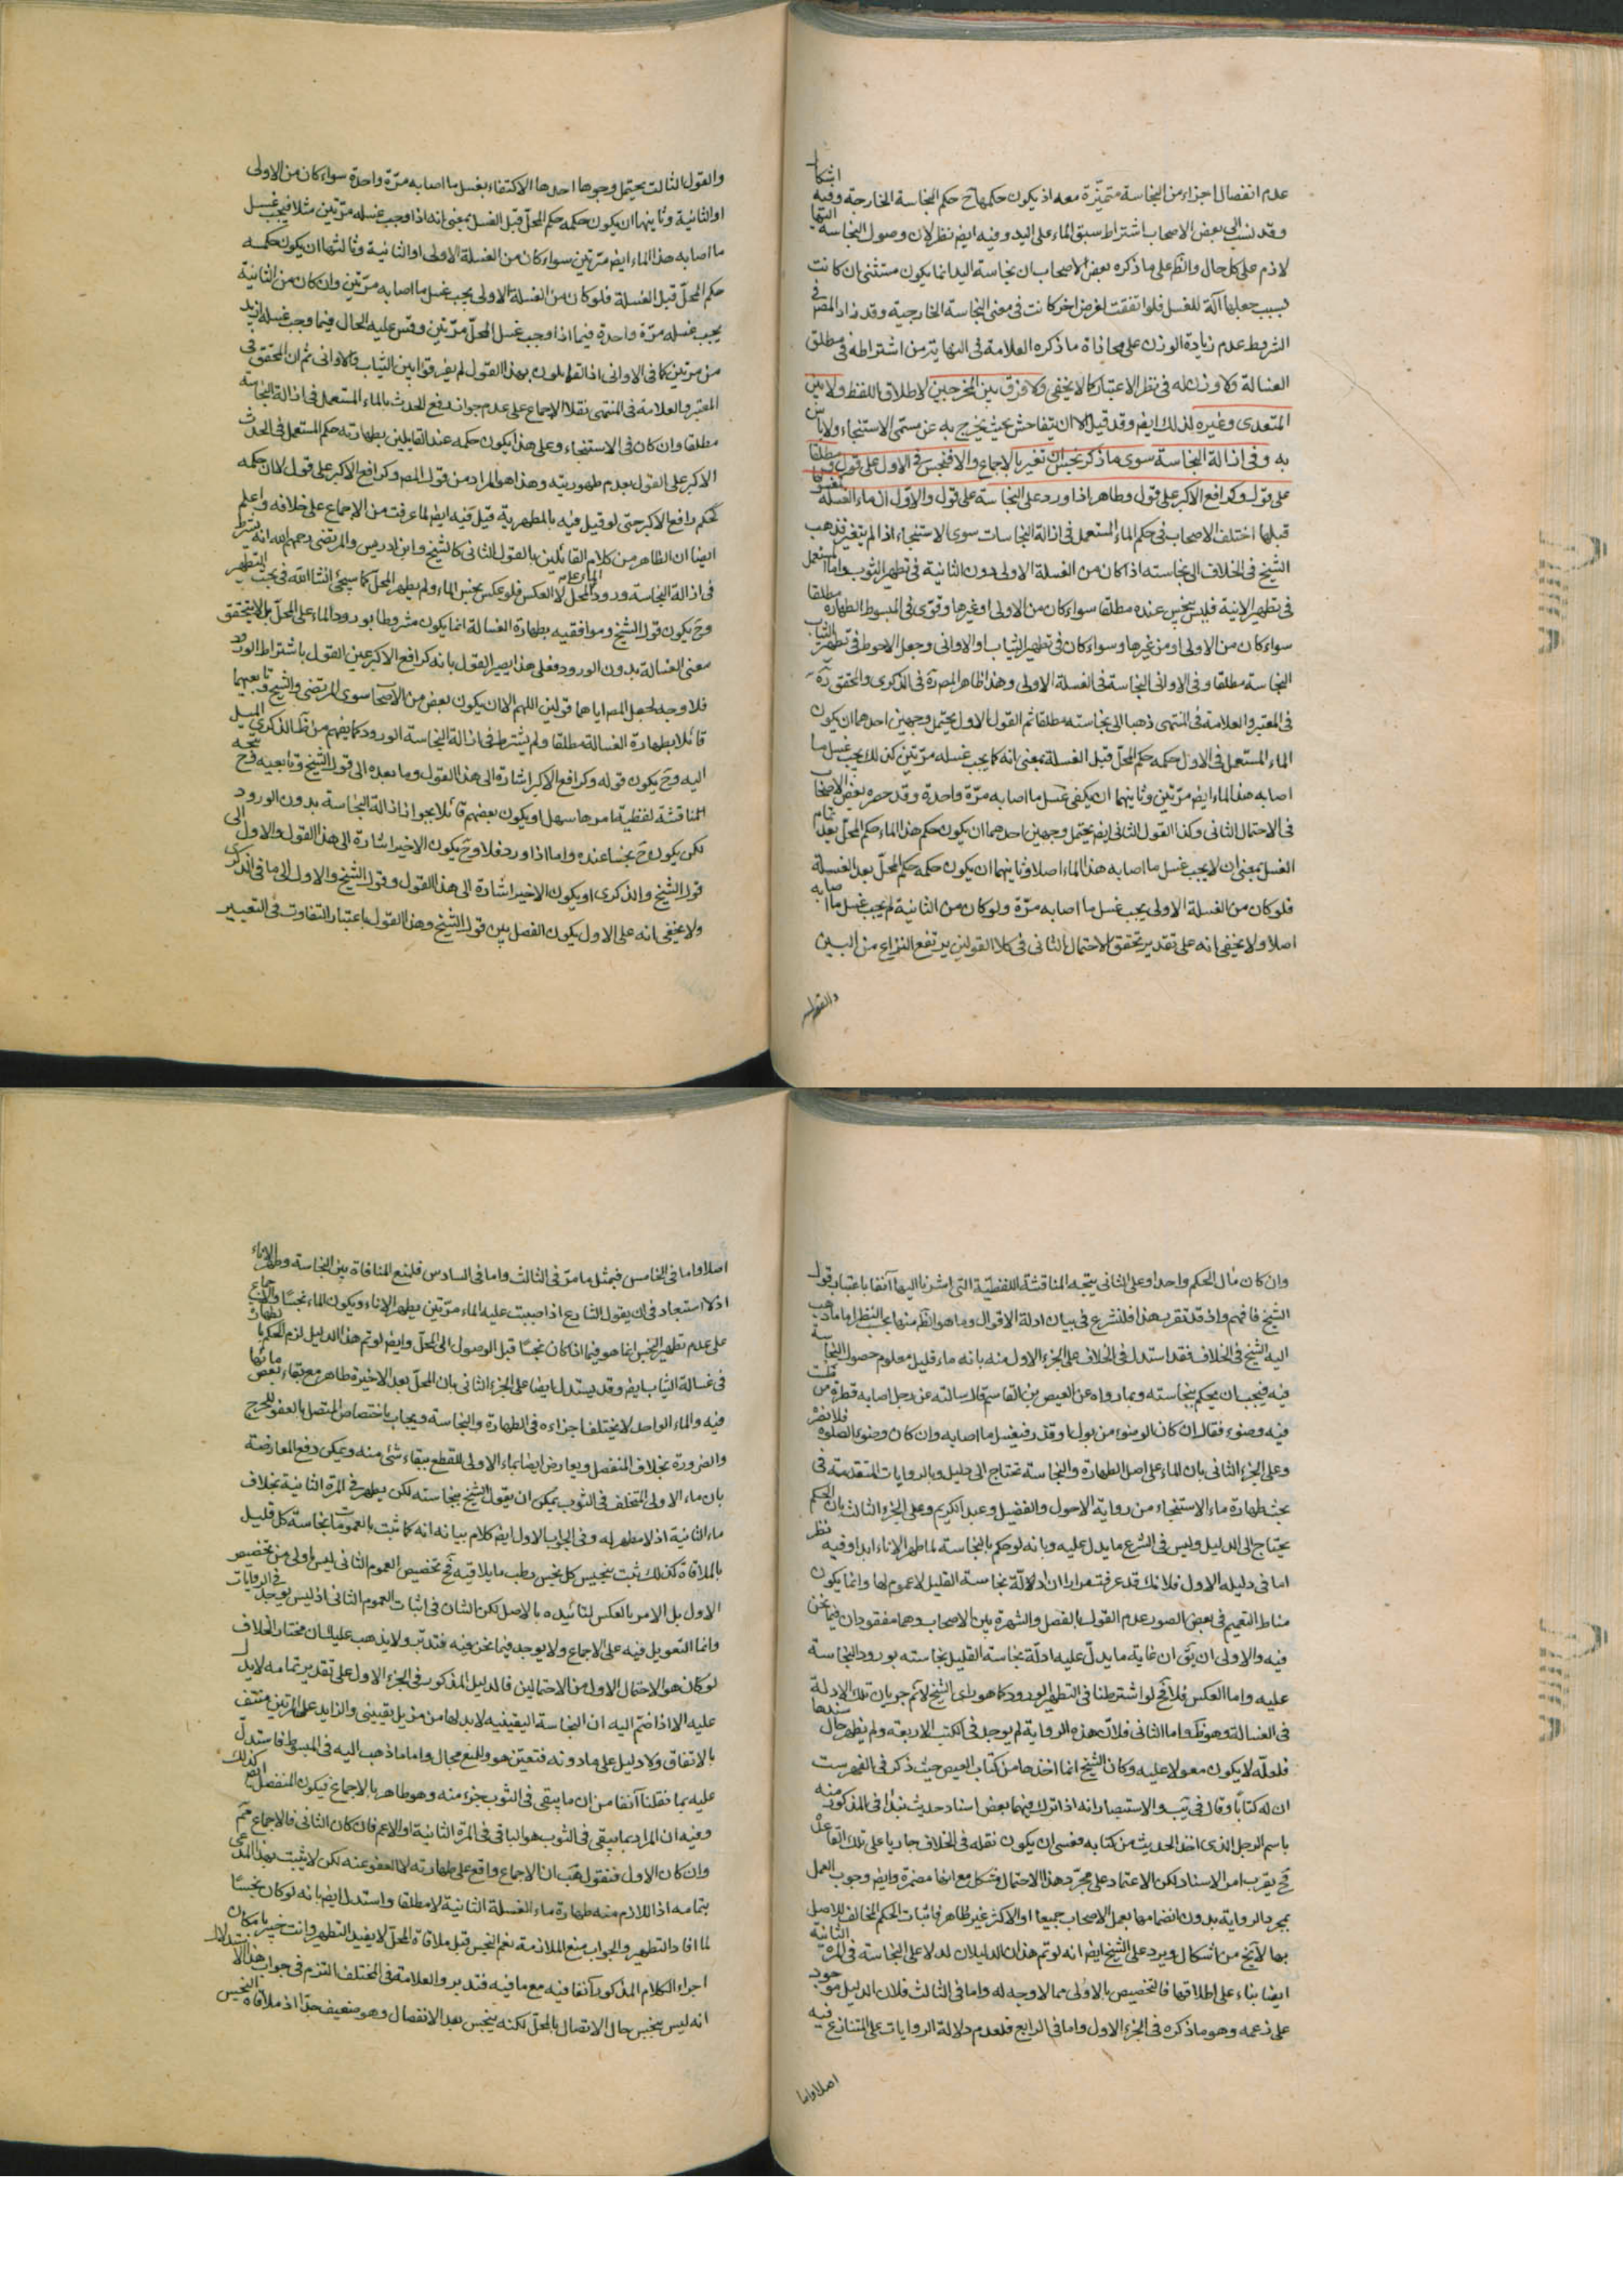 عدم انفصال اجزاء من النجاسة متميّزة معه اذ يكون حكمها ح حكم النجاسة الخارجة وفيه اشكال
وقد نسب الى بعض الاصحاب اشتراط سبق الماء على اليد وفيه ايضا نظر لان وصول النجاسة اليها
لازم على كل حال والظ على ما ذكره بعض الاصحاب ان نجاسة اليد انما يكون مستثنى ان كانت
بسبب جعلها آلة للغسل فلو اتفقت لغرض اخر كانت فى معنى النجاسة الخارجية وقد زاد المصر فى
الشروط عدم زيادة الوزن على محاذاة ما ذكره العلامة فى النهاية من اشتراطه فى مطلق
الغسالة ولا وزن له فى نظر الاعتبار كما لا يخفى ولا فرق بين المخرجين لاطلاق اللفظ ولا بين
المتعدى وغيره لذلك ايضا وقد قيل الا ان يتفاحش بحيث يخرج به عن مسمى الاستنجاء ولا باس
به وفى ازالة النجاسة سوى ما ذكر نجس ان تغير بالاجماع والا فنجس فى الاول على قول ومطلقا
على قول وكرافع الاكبر على قول وطاهر اذا ورد على النجاسة على قول والاول ان ماء الغسلة كمغسولها
قبلها اختلف الاصحاب فى حكم الماء المستعمل فى ازالة النجاسات سوى الاستنجاء اذا لم يتغير فذهب
الشيخ فى الخلاف الى نجاسته اذا كان من الغسلة الاولى دون الثانية فى تطهير الثوب واما المستعمل
فى تطهير الانية فليس بنجس عنده مطلقا سواء كان من الاولى او غيرها وقوى فى المبسوط الطهارة مطلقا
سواء كان من الاولى او من غيرها وسواء كان فى تطهير الثياب او الاوانى وجعل الاحوط فى تطهير الثياب
النجاسة مطلقا وفى الاوانى النجاسة فى الغسلة الاولى وهذا ظاهر المصرة فى الذكرى والمحقق ره
فى المعتبر والعلامة فى المنتهى ذهبا الى نجاسته مطلقا ثم القول الاول يحتمل وجهين احدهما ان يكون
الماء المستعمل فى الاول حكمه حكم المحل قبل الغسلة بمعنى انه كما يجب غسله مرتين كذلك يجب غسل ما
اصابه هذا الماء ايضا مرتين وثانيهما ان يكفى غسل ما اصابه مرة واحدة وقد حصره بعض الاصحاب
فى الاحتمال الثانى وكذا القول الثانى ايضا يحتمل وجهين احدهما ان يكون حكم هذا الماء حكم المحل بعد تمام
الغسل بمعنى ان لا يجب غسل ما اصابه هذا الماء اصلا وثانيهما ان يكون حكمه حكم المحل بعد الغسلة
فلو كان من الغسلة الاولى يجب غسل ما اصابه مرة ولو كان من الثانية لم يجب غسل ما اصابه
اصلا ولا يخفى انه على تقدير تحقق الاحتمال الثانى فى كلا القولين يرتفع النزاع من البين
والقول
والقول الثالث يحتمل وجوها احدها الاكتفاء بغسل ما اصابه مرة واحدة سواء كان من الاولى
او الثانية وثانيها ان يكون حكمه حكم المحل قبل الغسل بمعنى انه اذا وجب غسله مرتين مثلا فيجب غسل
ما اصابه هذا الماء ايضا مرتين سواء كان من الغسلة الاولى او الثانية وثالثها ان يكون حكمه
حكم المحل قبل الغسلة فلو كان من الغسلة الاولى يجب غسل ما اصابه مرتين وان كان من الثانية
يجب غسله مرة واحدة فيما اذا وجب غسل المحل مرتين وقس عليه الحال فيما وجب غسله ازيد
من مرتين كما فى الاوانى اذ القائلون بهذا القول لم يفرقوا بين الثياب والاوانى ثم ان المحقق فى
المعتبر والعلامة فى المنتهى نقلا الاجماع على عدم جواز رفع الحدث بالماء المستعمل فى ازالة النجاسة
مطلقا وان كان فى الاستنجاء وعلى هذا يكون حكمه عند القايلين بطهارته حكم المستعمل فى الحدث
الاكبر على القول بعدم طهوريته وهذا هو المراد من قول المص وكرافع الاكبر على قول لا ان حكمه
كحكم رافع الاكبر حتى لو قيل فيه بالمطهرية قيل فيه ايضا لما عرفت من الاجماع على خلافه واعلم
ايضا ان الظاهر من كلام القائلين بالقول الثانى كالشيخ وابن ادريس والمرتضى رحمهم الله انه يشترط
فى ازالة النجاسة ورود الماء على المحل لا العكس فلو عكس نجس الماء ولم يطهر المحل كما سيجئ انشا الله فى بحث التطهير
وح يكون قول الشيخ وموافقيه بطهارة الغسالة انما يكون مشروطا بورود الماء على المحل بل لا يتحقق
معنى الغسالة بدون الورود فعلى هذا يصير القول بانه كرافع الاكبر عين القول باشتراط الورود
فلا وجه لجعل المص اياهما قولين اللهم الا ان يكون بعض من الاصحاب سوى المرتضى والشيخ وتابعيهما
قائلا بطهارة الغسالة مطلقا ولم يشترط فى ازالة النجاسة الورود كما يفهم من ظ الذكرى الميل
اليه وح يكون قوله وكرافع الاكبر اشارة الى هذا القول وما بعده الى قول الشيخ وتابعيه وح
المناقشة لفظية امرها سهل او يكون بعضهم قائلا بجواز ازالة النجاسة بدون الورود
لكن يكون ح نجسا عنده واما اذا ورد فلا وح يكون الاخير اشارة الى هذا القول والاول الى
قول الشيخ والذكرى او يكون الاخير اشارة الى هذا القول وقول الشيخ والاول الى ما فى الذكرى
ولا يخفى انه على الاول يكون الفصل بين قول الشيخ وهذا القول باعتبار التفاوت فى التعبير
وان كان مآل الحكم واحدا وعلى الثانى يتجه المناقشة اللفظية التى اشرنا اليها آنفا باعتبار قول
الشيخ فافهم واذ قد تقرر هذا فلنشرع فى بيان ادلة الاقوال وما هو الظ منها بحسب النظر اما ما ذهب
اليه الشيخ فى الخلاف فقد استدل فى الخلاف على الجزء الاول منه بانه ماء قليل معلوم حصول النجاسة
فيه فيجب ان يحكم بنجاسته وبما رواه عن العيص بن القاسم قال سالته عن رجل اصابه قطرة من طشت
فيه وضوء فقال ان كان الوضوء من بول او قذر فيغسل ما اصابه وان كان وضوء الصلوة فلا يضره
وعلى الجزء الثانى بان الماء على اصل الطهارة والنجاسة تحتاج الى دليل وبالروايات المتقدمة فى
بحث طهارة ماء الاستنجاء من رواية الاحول والفضيل وعبد الكريم وعلى الجزء الثالث بان الحكم
يحتاج الى الدليل وليس فى الشرع ما يدل عليه وبانه لو حكم بالنجاسة لما طهر الاناء ابدا وفيه نظر
اما فى دليله الاول فلانك قد عرفت مرارا ان ادلة نجاسة القليل لا عموم لها وانما يكون
مناط التعميم فى بعض الصور عدم القول بالفصل والشهرة بين الاصحاب وهما مفقودان فيما نحن
فيه والاولى ان يق ان غاية ما يدل عليه ادلة نجاسة القليل نجاسته بورود النجاسة
عليه واما العكس فلا فح لو اشترطنا فى التطهير الورود كما هو راى الشيخ لا تم جريان تلك الادلة
فى الغسالة وهو ظ واما الثانى فلان هذه الرواية لم يوجد فى الكتب الاربعة ولم يظهر حال سندها
فلعله لا يكون معولا عليه وكان الشيخ انما اخذها من كتاب العيص حيث ذكر فى الفهرست
ان له كتابا وقال فى يب والاستبصار انه اذا ترك فيهما بعض اسناد حديث نبدا فى المذكور منه
باسم الرجل الذى اخذ الحديث من كتابه فعسى ان يكون نقله فى الخلاف جاريا على تلك القاعدة
فح يقرب امر الاسناد لكن الاعتماد على مجرد هذا الاحتمال مشكل مع انها مضمرة وايضا وجوب العمل
بمجرد الرواية بدون انضمامها بعمل الاصحاب جميعا او الاكثر غير ظاهر فاثبات الحكم المخالف للاصل
بها لا يخ من اشكال ويرد على الشيخ ايضا انه لو تم هذان الدليلان لدلا على النجاسة فى المرة الثانية
ايضا بناء على اطلاقهما فالتخصيص بالاولى مما لا وجه له واما فى الثالث فلان الدليل موجود
على زعمه وهو ما ذكره فى الجزء الاول واما فى الرابع فلعدم دلالة الروايات على المتنازع فيه
اصلا واما
اصلا واما فى الخامس فبمثل ما مر فى الثالث واما فى السادس فلمنع المنافاة بين النجاسة وطهر الاناء
اذ لا استبعاد فى ان يقول الشارع اذا صببت عليه الماء مرتين يطهر الاناء ويكون الماء نجسا والاجماع
على عدم تطهير النجس انما هو فيما اذا كان نجسا قبل الوصول الى المحل وايضا لو تم هذا الدليل لزم الحكم بطهارة
فى غسالة الثياب ايضا وقد يستدل ايضا على الجزء الثانى بان المحل بعد الاخيرة طاهر مع بقاء بعض مائها
فيه والماء الواحد لا يختلف اجزاءه فى الطهارة والنجاسة ويجاب باختصاص المتصل بالعفو للحرج
والضرورة بخلاف المنفصل ويعارض ايضا بماء الاولى للقطع ببقاء شئ منه ويمكن دفع المعارضة
بان ماء الاولى المتخلف فى الثوب يمكن ان يقول الشيخ بنجاسته لكن يطهر فى المرة الثانية بخلاف
ماء الثانية اذ لا مطهر له وفى الجواب الاول ايضا كلام بيانه انه كما ثبت بالعمومات نجاسة كل قليل
بالملاقاة كذلك ثبت تنجيس كل نجس رطب ما يلاقيه فح تخصيص العموم الثانى ليس اولى من تخصيص
الاول بل الامر بالعكس لتائيده بالاصل لكن الشان فى اثبات العموم الثانى اذ ليس يوجد فى الروايات
وانما التعويل فيه على الاجماع ولا يوجد فيما نحن فيه فتدبر ولا يذهب عليك ان مختار الخلاف
لو كان هو الاحتمال الاول من الاحتمالين فالدليل المذكور فى الجزء الاول على تقدير تمامه لا يدل
عليه الا اذا ضم اليه ان النجاسة اليقينية لا بد لها من مزيل يقينى والزايد على المرتين منتف
بالاتفاق ولا دليل على ما دونه فتعين هو وللمنع مجال واما ما ذهب اليه فى المبسوط فاستدل
عليه بما نقلنا آنفا من ان ما يبقى فى الثوب جزء منه وهو طاهر بالاجماع فيكون المنفصل ايضا كذلك
وفيه ان المراد بما يبقى فى الثوب هو الباقى فى المرة الثانية او الاعم فان كان الثانى فالاجماع مم
وان كان الاول فنقول هب ان الاجماع واقع على طهارته لا العفو عنه لكن لا يثبت بهذا المدعى
بتمامه اذ اللازم منه طهارة ماء الغسلة الثانية لا مطلقا واستدل ايضا بانه لو كان نجسا
لما افاد التطهير والجواب منع الملازمة نعم النجس قبل ملاقاة المحل لا يفيد التطهير وانت خبير بامكان
اجراء الكلام المذكور آنفا فيه مع ما فيه فتدبر والعلامة فى المختلف التزم فى جواب هذا الاستدلال
انه ليس بنجس حال الاتصال بالمحل لكنه ينجس بعد الانفصال وهو ضعيف جدا اذ ملاقاة النجس